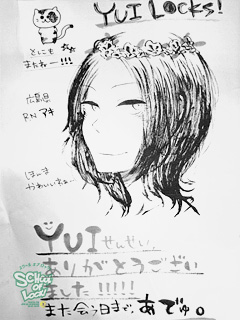 YUI LOCKS!
とこにも
またねー!!!
広島県
RN アキ
ほんま
かわいいねぇ~
YUIせんせい。
ありがとうござい
ました!!!!!
また会う日まで、あでゅ。
SCHOOL
OF
LOCK!